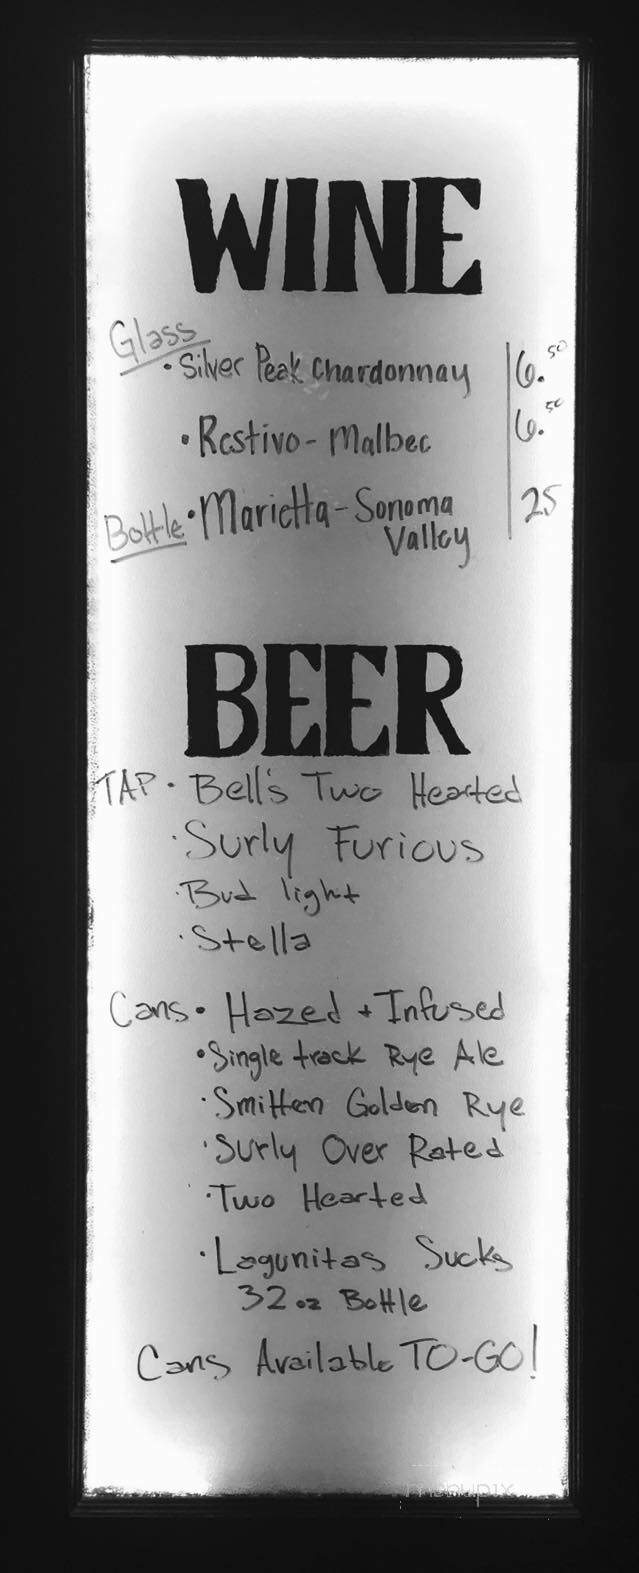 WINE
Glass
• Silver Peak Chardonnay | 6.50
• Restivo - Malbec | 6.50
Bottle • Marietta - Sonoma | 25
Valley
BEER
TAP • Bell's Two Hearted
• Surly Furious
• Bud light
• Stella
Cans • Hazed + Infused
• Single track Rye Ale
• Smitten Golden Rye
• Surly Over Rated
• Two Hearted
• Lagunitas Sucks
32 oz Bottle
Cans Available TO-GO!
menupix